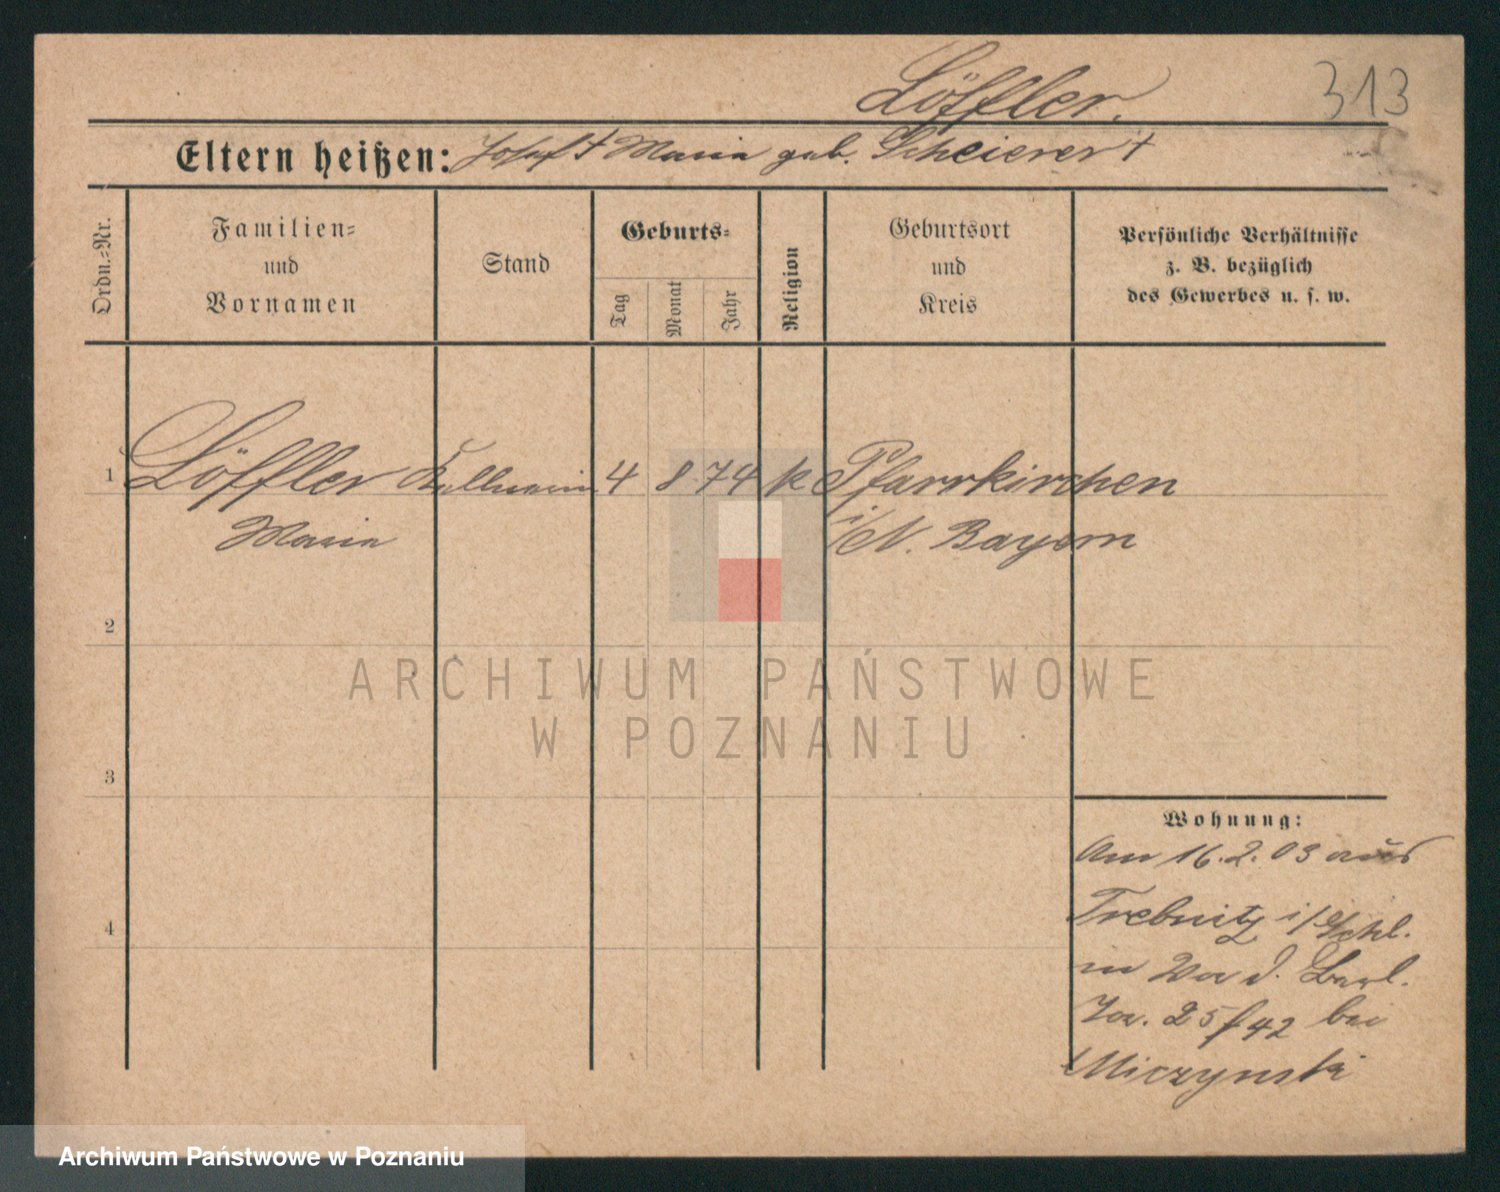 313
Löffler.
Eltern heißen: Josef † Maria geb. Scheierer †
Ordn.=Nr.
Familien=
und
Vornamen
Stand
Geburts=
Tag
Monat
Jahr
Religion
Geburtsort
und
Kreis
Persönliche Verhältnisse
z. B. bezüglich
des Gewerbes u. s. w.
1 Löffler Kellnerin 4 8 74 k Pfarrkirchen
Maria i/N. Bayern
2
ARCHIWUM PAŃSTWOWE
W POZNANIU
3
Wohnung:
Am 16.2.03 aus
Trebnitz i/Schl.
4
in d. Berl.
25 42 bei
Miczynski
Archiwum Państwowe w Poznaniu